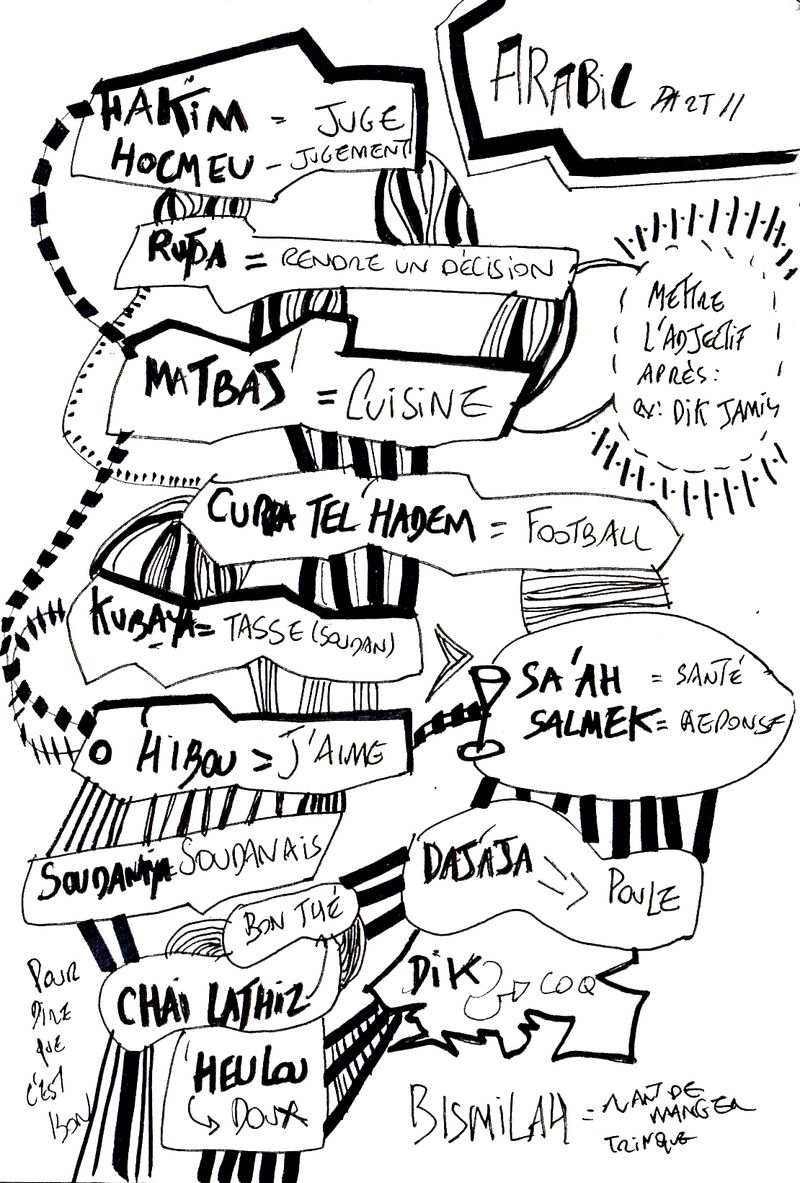 ARABIC PART II
HAKIM = JUGE
HOCMEU - JUGEMENT
= RENDRE UN DÉCISION
METTRE
L'ADJECTIF
APRÈS:
EX: DIK JAMIL
MATBAJ = CUISINE
TEL HADEM = FOOTBALL
KUBAYA = TASSE (SOUDAN)
SA'AH = SANTÉ
SALMEK = REPONSE
O HIBOU > J'AIME
SOUDANIYA = SOUDANAIS
DAJAJA
POULE
BON THÉ
CHAI LATHIZ
DIK COQ
POUR
DIRE
QUE
C'EST
BON
HEULOU
DOUX
BISMILAH = AVANT DE
MANGER
TRINQUE